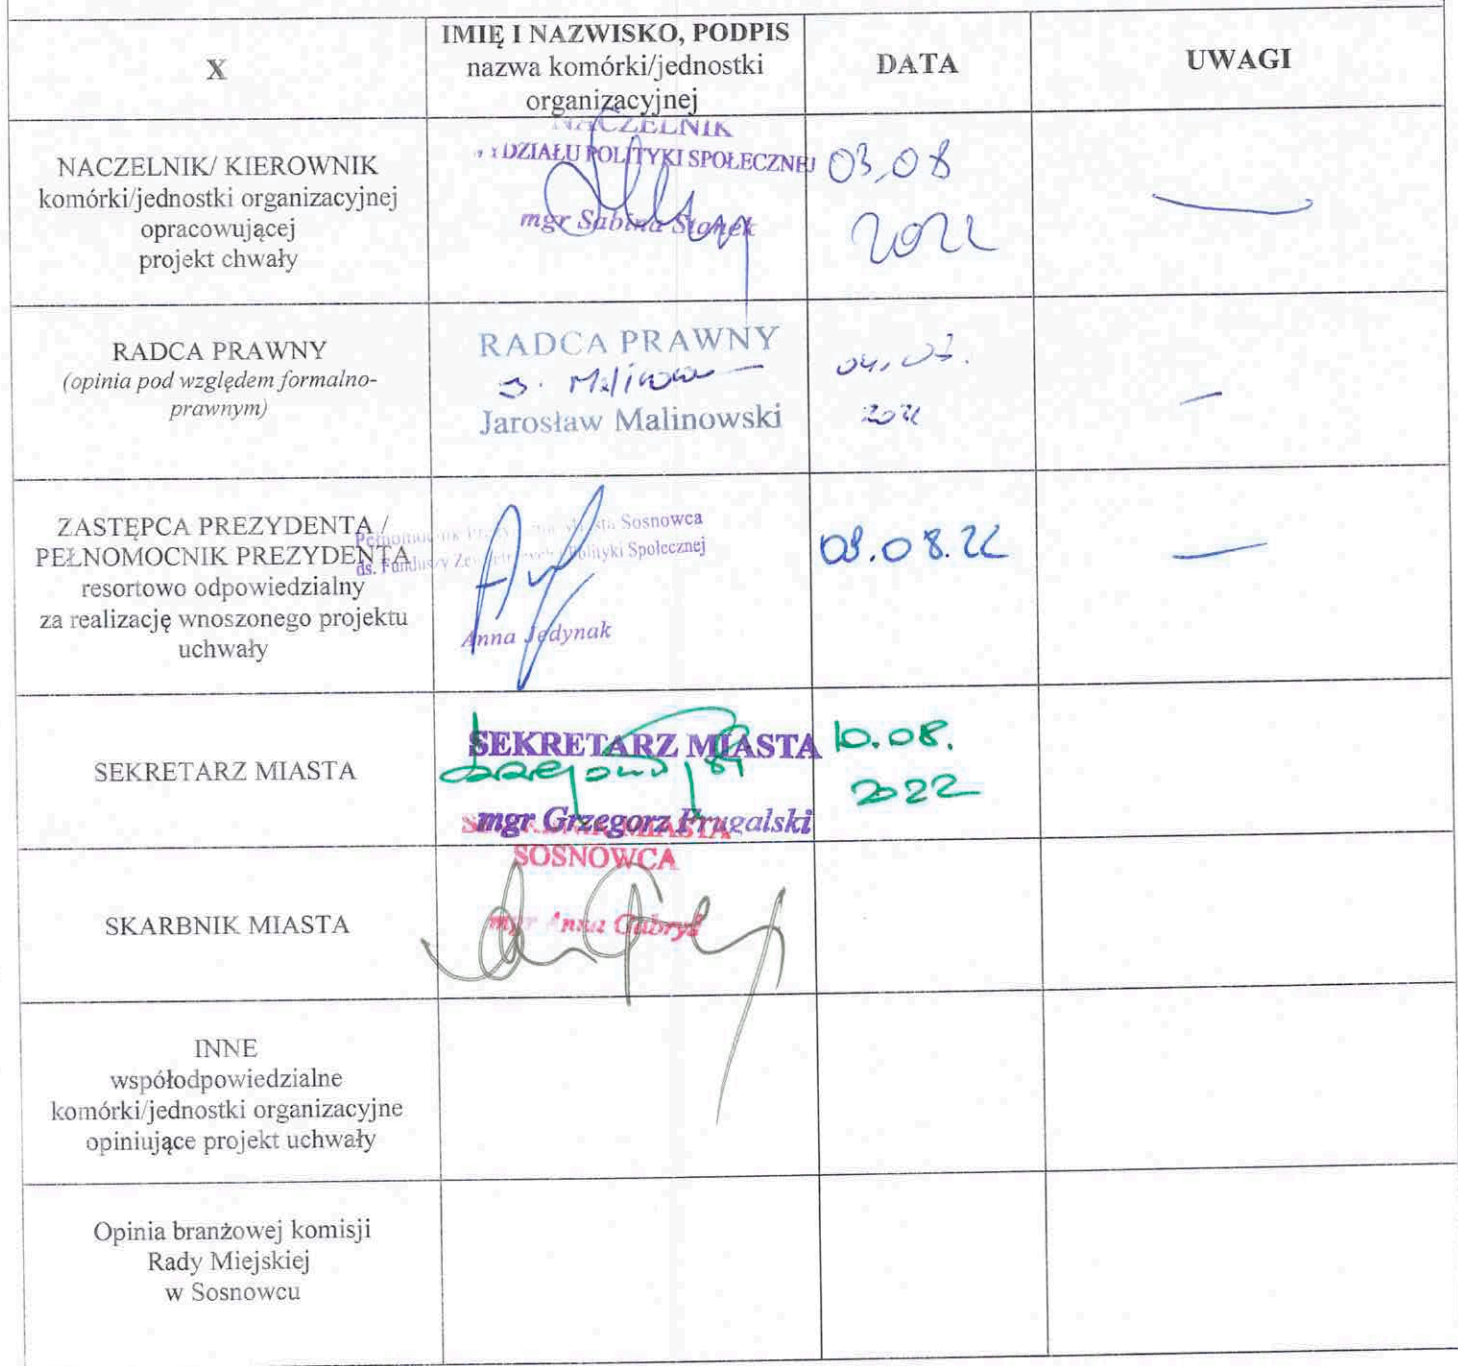 X
IMIĘ I NAZWISKO, PODPIS
nazwa komórki/jednostki
organizacyjnej
DATA
UWAGI
NACZELNIK/ KIEROWNIK
komórki/jednostki organizacyjnej
opracowującej
projekt chwały
NACZELNIK
DZIAŁU POLITYKI SPOŁECZNEJ
mgr Sabina Stanek
03,08
2022
RADCA PRAWNY
(opinia pod względem formalno-
prawnym)
RADCA PRAWNY
J. Malinow
Jarosław Malinowski
2022
ZASTĘPCA PREZYDENTA /
PEŁNOMOCNIK PREZYDENTA
resortowo odpowiedzialny
za realizację wnoszonego projektu
uchwały
Pełnomocnik Prezydenta Miasta Sosnowca
ds. Funduszy Zewnętrznych i Polityki Społecznej
Anna Jedynak
09.08.22
SEKRETARZ MIASTA
SEKRETARZ MIASTA
mgr Grzegorz Frugalski
10.08.
2022
SKARBNIK MIASTA
SKARBNIK MIASTA
SOSNOWCA
mgr Anna Gabryś
INNE
współodpowiedzialne
komórki/jednostki organizacyjne
opiniujące projekt uchwały
Opinia branżowej komisji
Rady Miejskiej
w Sosnowcu